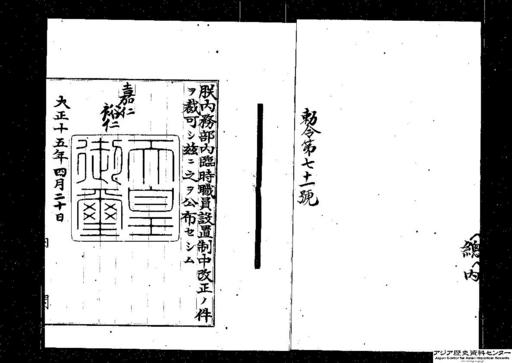 勅令第七十一號
朕内務部内臨時職員設置制中改正ノ件
ヲ裁可シ茲ニ之ヲ公布セシム
嘉仁
裕仁
天皇
御璽
大正十五年四月二十日
内閣
アジア歴史資料センター
Japan Center for Asian Historical Records